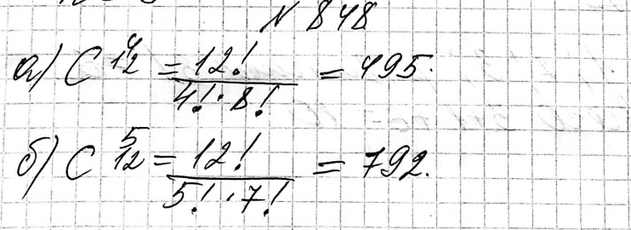 № 848
а) C⁴₁₂ = 12! / (4! · 8!) = 495.
б) C⁵₁₂ = 12! / (5! · 7!) = 792.